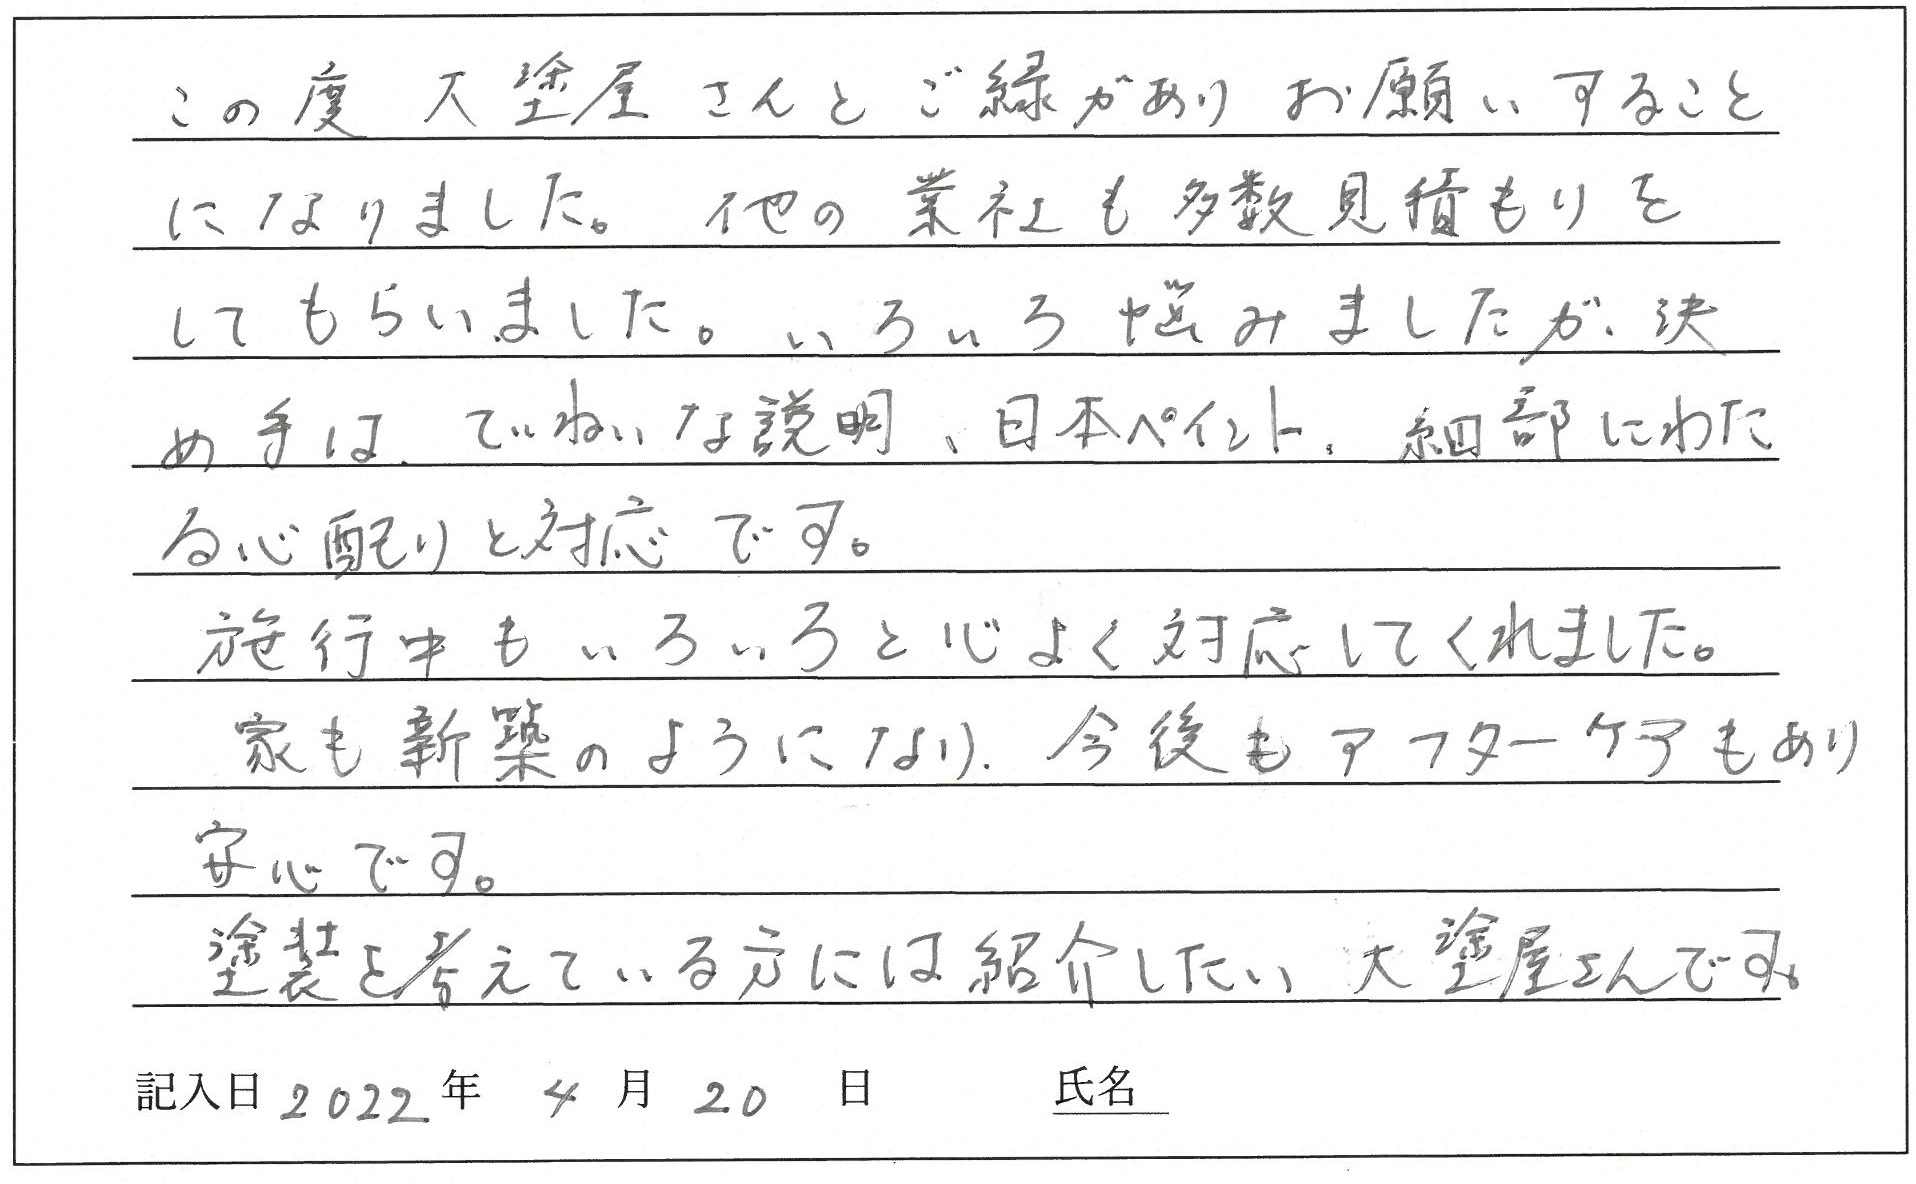 この度 大塗屋さんとご縁がありお願いすること
になりました。 他の業社も多数見積もりを
してもらいました。いろいろ悩みましたが、決
め手は、ていねいな説明、日本ペイント、細部にわた
る心配りと対応です。
施行中もいろいろと心よく対応してくれました。
家も新築のようになり、今後もアフターケアもあり
安心です。
塗装を考えている方には紹介したい 大塗屋さんです。
記入日 2022 年 4 月 20 日 氏名